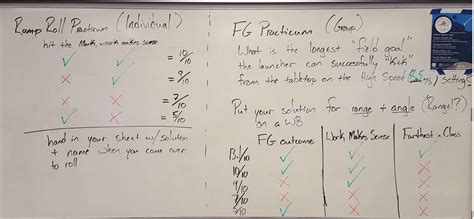 Ramp Roll Practicum (Individual)
hit the Mark, work makes sense
✓ ✓ = 10/10
✗ ✓ = 9/10
✓ ✗ = 7/10
✗ ✗ = 5/10
hand in your sheet w/ solution
+ name when you come over
to roll
FG Practicum (Group)
What is the longest "field goal"
the launcher can successfully "kick"
from the tabletop on the High Speed Setting?
Put your solution for range + angle (Range!?)
on a WB
FG outcome Work Makes Sense Farthest in Class
13.1/10 ✓ ✓ ✓
10/10 ✓ ✓ ✗
9/10 ✗ ✓ ✗
7/10 ✓ ✗ ✗
5/10 ✗ ✗ ✗